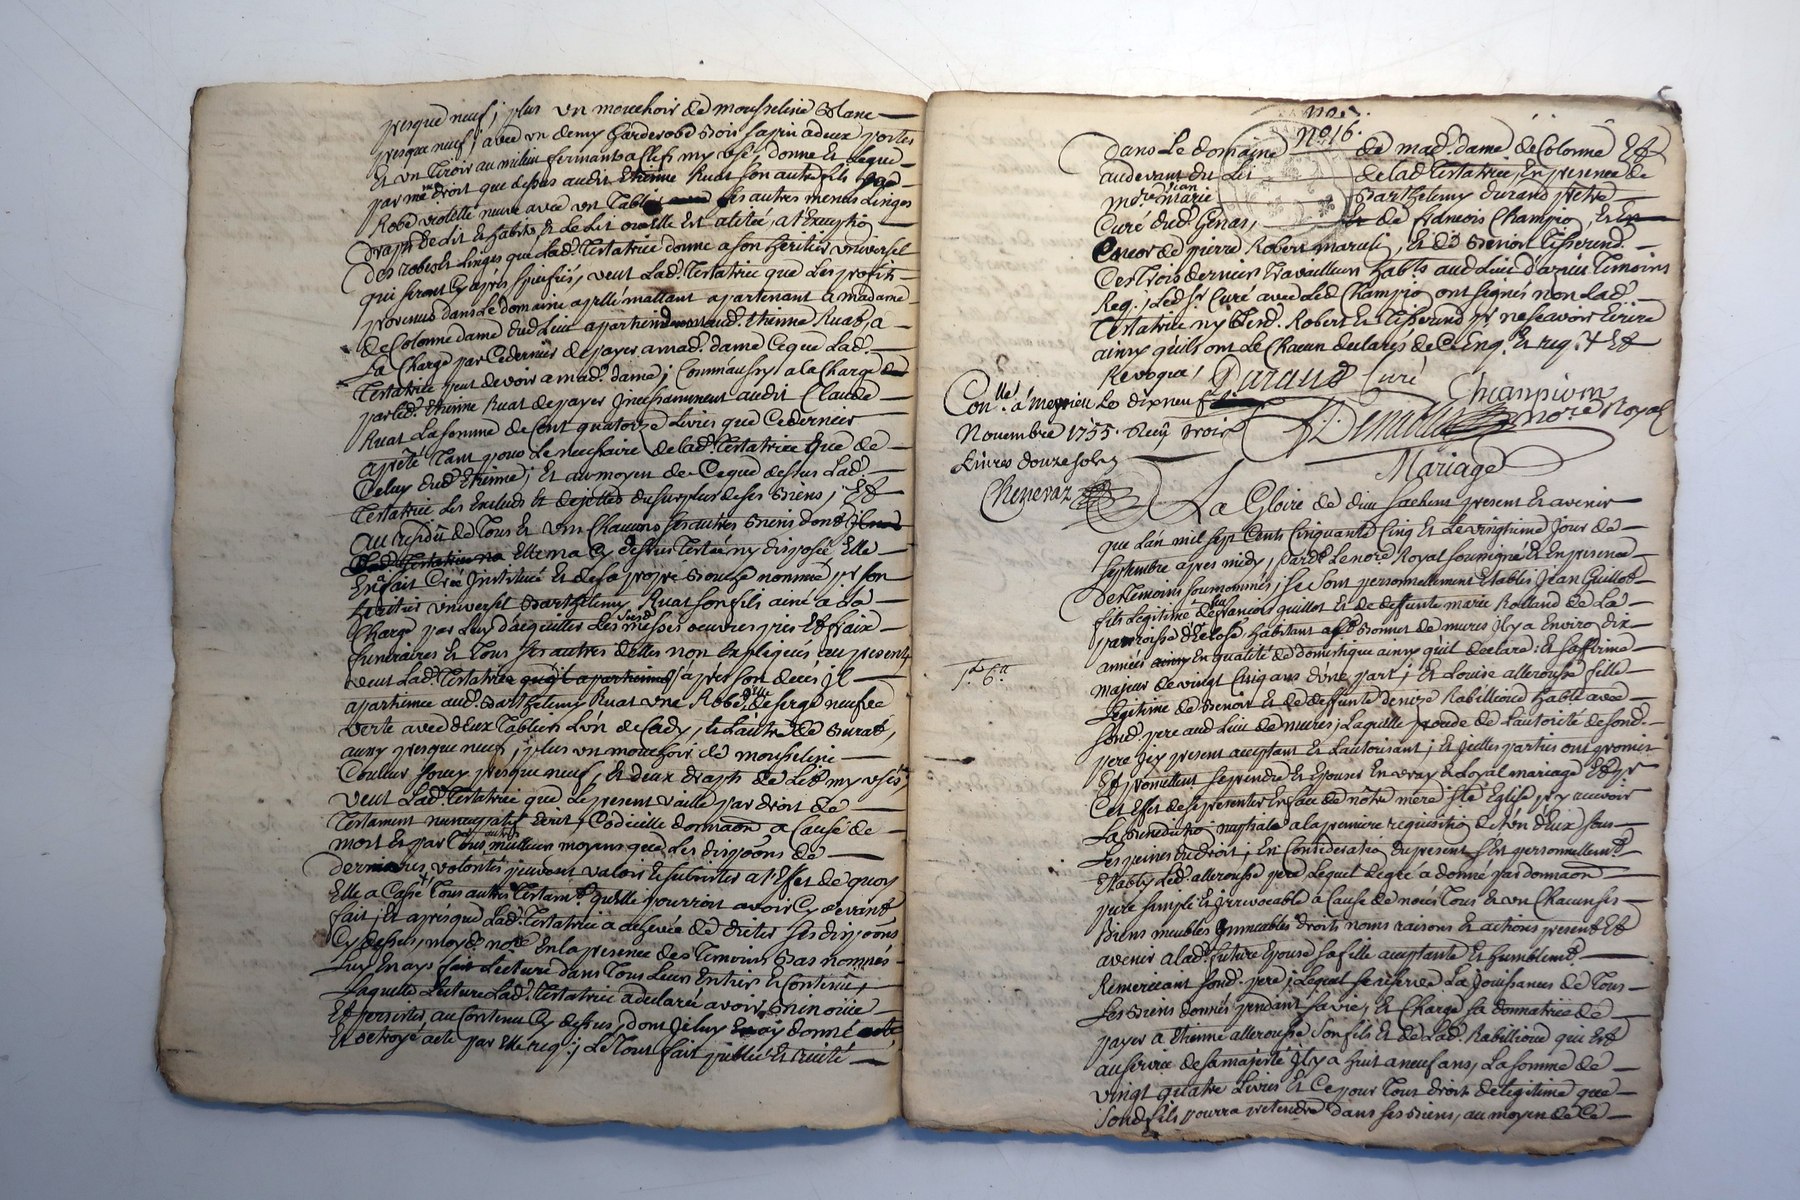 presque neuf; plus un mouchoir de mousseline Blanc
presque neuf; avec un demy garderobe Bois sapin a deux portes
Et un Tiroir au milieu fermants a clefs my usé; donne Et legue
par me droit que dessus audit Etienne Ruat son autre fils
Robe violette neuve avec un Tablier les autres menus Linges
draps de Lit Et habits, Et le Lit ou elle Est alitée, a l'Exceptio
des robes Et Linges que Lad. Testatrice donne a son heritier universel
qui seront cy après spécifiés, veut Lad. Testatrice que Les profits
provenus dans Le domaine apellé mallant apartenant a madame
de Colonne dame dud Lieu apartiennent aud. Etienne Ruat, a
La Charge par Ce dernier de payer a mad. dame Ce que Lad.
Testatrice peut devoir a mad. dame; Comm'aussy a la Charge
par led. Etienne Ruat de payer Incessamment audit Claude
Ruat La somme de Cent quatorze Livres que Ce dernier
a prêté Tant pour Le necessaire de Lad. Testatrice que de
Celuy dud Etienne; Et au moyen de Ce que dessus Lad.
Testatrice Les Exclud Et dejette du surplus de ses Biens; Et
Au residu de Tous Et uns Chacuns ses autres Biens dont
Lad. Testatrice na Elle na Cy dessus Testé ny disposé Elle
En a fait Créé Institué Et de sa propre Bouche nommé pr son
heritier universel Barthelemy Ruat son fils ainé a La
Charge par Luy d'acquitter Les messes oeuvres pies Et fraix
funeraires Et Tous ses autres dettes non Expliqués au present
veut Lad. Testatrice qu'après son decès il
apartienne aud. Barthelemy Ruat une Robe de serge neufve
verte avec deux Tabliers L'un de Cady, Et L'autre de Burat,
aussy presque neuf; plus un mouchoir de mousseline
Couleur presque neuf, Et deux draps de Lit my usés,
veut Lad. Testatrice que Le present vaille par droit de
Testament nuncupatif Ecrit, Codicille donnaon a Cause de
mort Et par Tous autres meilleurs moyens que Les dispoons de
dernieres volontés peuvent valoir Et subsister a l'Effet de quoy
Elle a Cassé Tous autres Testamt. qu'elle pourroit avoir Cy devant
fait; Et après que Lad. Testatrice a achevée de dicter ses dispoons
Cy dessus, moyd. nore. En la presence des Temoins Bas nommés
Luy En ay fait Lecture dans Tous Leur Entier Et Contenu;
Laquelle Lecture Lad. Testatrice a declaré avoir Bien ouïe
Et persister au Contenu Cy dessus, dont Je luy En ay donné acte
Et octroyé acte par Elle req.; Le Tout fait publié Et recité
no.
no 16.
dans Le domaine de mad. dame de Colonne Et
au devant du Lit de lad. Testatrice En presence de
mre. Jean marie Barthelemy durand prêtre
Curé dud. Genas, de francois Champio,
de pierre Robert marechal, Et de Benoit Tisserand.
Les Trois derniers Travailleurs habts. aud Lieu d'azieu Temoins
Req.; Led. Sr. Curé avec Led. Champio ont signés non Lad.
Testatrice ny Lesd. Robert Et Tisserand pr ne scavoir Ecrire
ainsy quils ont Le Chacun declarés de Ce Enq. Et req. Et
Revoqué; Durand Curé
Champion
nore Royal
Conllé. a Meyzieu Le dix neuf
Novembre 1755. Reçu trois
Livres douze sols
Chenevaz
Mariage
La Gloire de dieu sachent present Et avenir
que L'an mil sept Cents Cinquante Cinq Et Le vingtieme Jour de
septembre apres midy, Pard. Le nore. Royal soussigné Et En presence
des Temoins sousnommés; se sont personnellement Etablis Jean Guillot
fils Legitime de francois guillot Et de deffunte marie Rolland de La
parroisse habitant a Bonnet de mures Il y a Enviro dix
années En qualité de domestique ainsy qu'il declare: Et s'affirme
majeur de vingt Cinq ans d'une part; Et Louise allerousse fille
Legitime de Benoit Et de deffunte denise Rabillioud habte. avec
sond. pere aud Lieu de mures; Laquelle procede de L'autorité de sond.
pere Icy present acceptant Et L'autorisant; Et Icelles parties ont promis
Et promettent se prendre Et Epouser En vray Et Loyal mariage Et pr
Cet Effet de se presenter En face de nôtre mere Ste. Eglise pr y recevoir
La Benedictio nuptiale a la premiere requisitio de L'un d'Eux sous
Les peines du droit; En Consideratio du present s'est personnellemt.
Etably Led. allerousse pere Lequel de gré a donné par donnaon
pure simple Et Irrevocable a Cause de noces Tous Et uns Chacuns ses
Biens meubles Immeubles droits noms raisons Et actions present Et
avenir a Lad. future Epouse sa fille acceptante Et humblemt.
Remerciant sond. pere; Lequel se reserve La Jouissance de Tous
Les Biens donnés pendant sa vie; Et Charge sa donnatrice de
payer a Etienne allerousse son fils Et de Lad. Rabillioud qui Est
au service de sa majesté Il y a huit a neuf ans, La somme de
vingt quatre Livres Et Ce pour Tous droits de Legitime que
sond. fils pourra pretendre dans ses Biens, au moyen de Ce